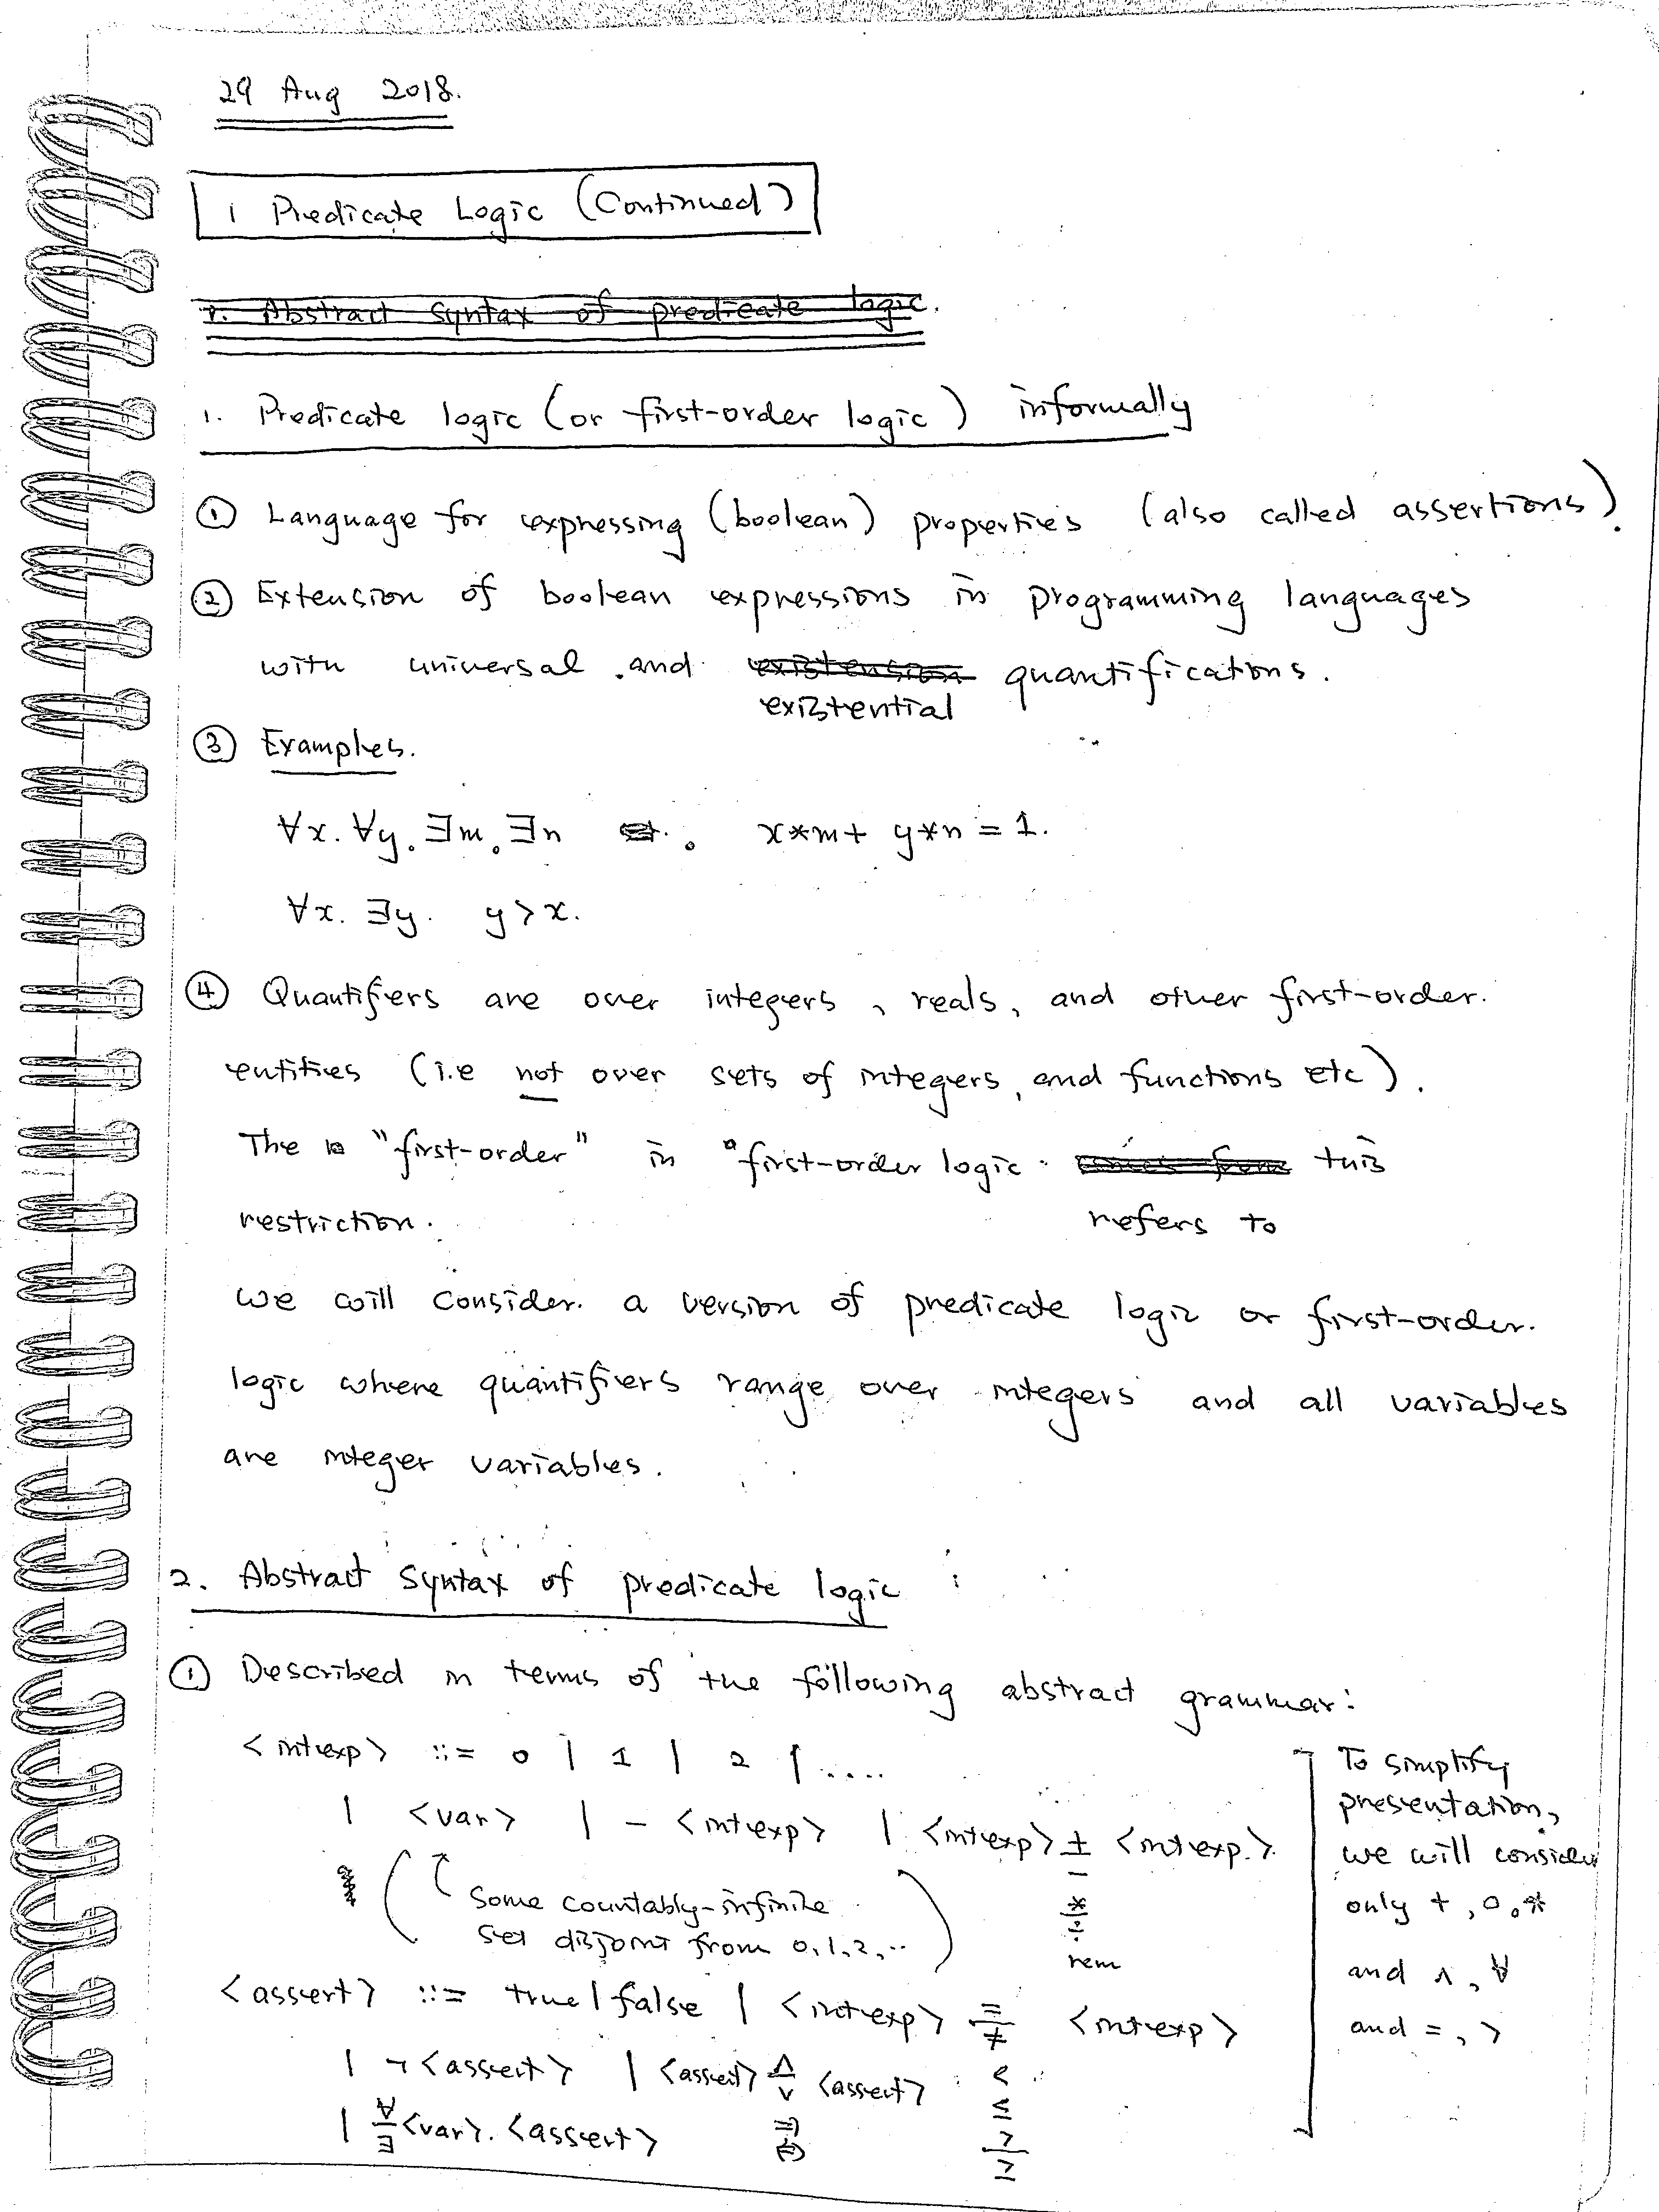 29 Aug 2018.
1 Predicate Logic (Continued)
1. Abstract syntax of predicate logic.
1. Predicate logic (or first-order logic) informally
① Language for expressing (boolean) properties (also called assertions).
② Extension of boolean expressions in programming languages
with universal and existension quantifications.
existential
③ Examples.
∀x. ∀y. ∃m. ∃n . x*m+ y*n = 1.
∀x. ∃y. y > x.
④ Quantifiers are over integers, reals, and other first-order.
entities (i.e not over sets of integers, and functions etc).
The "first-order" in "first-order logic comes from this
restriction. refers to
We will consider a version of predicate logic or first-order.
logic where quantifiers range over integers and all variables
are integer variables.
2. Abstract syntax of predicate logic
① Described in terms of the following abstract grammar:
<intexp> ::= 0 | 1 | 2 | ....
| <var> | - <intexp> | <intexp> + <intexp>
-
( Some countably-infinite
set disjoint from 0,1,2,.. )
*
÷
rem
<assert> ::= true | false | <intexp> = <intexp>
≠
| ¬ <assert> | <assert> ∧ <assert> <
∨ ≤
| ∀ <var>. <assert> ⇒ >
∃ ⇔ ≥
To simplify
presentation,
we will consider
only +, 0, *
and ∧, ∀
and =, >